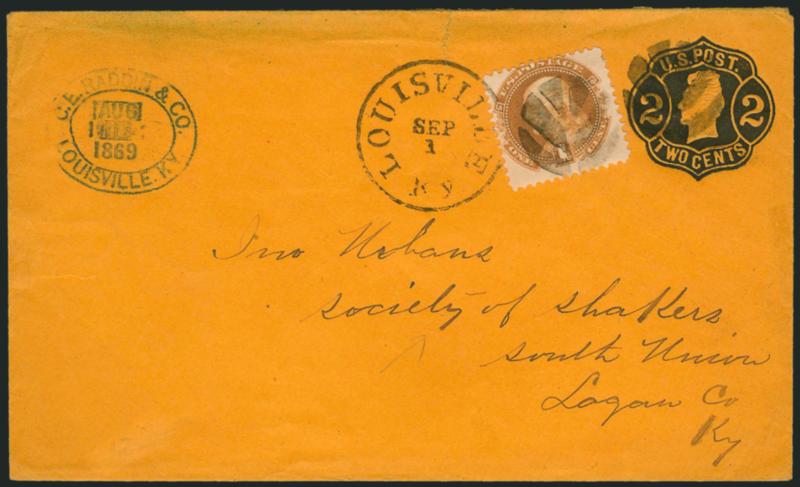 C.E. RADDIN & CO.
AUG
1869
LOUISVILLE, KY.
LOUISVILLE
SEP
1
Ky
U.S. POSTAGE
U.S. POST.
2 2
TWO CENTS
Jno Urbans
society of shakers
south Union
Logan Co
Ky